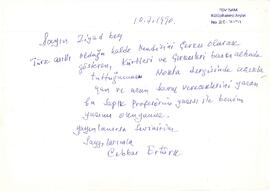 TDV İSAM
Kütüphanesi Arşivi
No
10.7.1990.
Sayın Ziyad bey
Türk asıllı olduğu halde kendisini Çerkes olarak
gösteren, Kürtleri ve Çerkesleri baskı altında
tuttuğumuzu Nokta dergisinde
ve uzun zarar vereceklerini yazan
bu Profesörün yazısı ile benim
yazımı okuyunuz.
yayınlarsanız sevinirim
Saygılarımla
Cebbar Ertürk